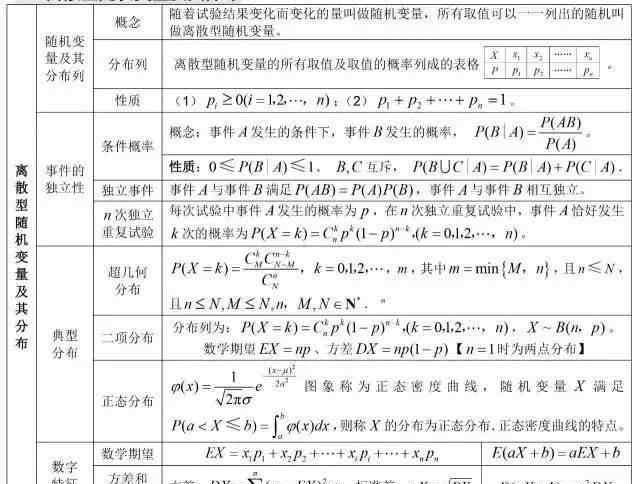 离散型随机变量及其分布
随机变量及其分布列
概念
随着试验结果变化而变化的量叫做随机变量，所有取值可以一一列出的随机叫
做离散型随机变量。
分布列
离散型随机变量的所有取值及取值的概率列成的表格
X x₁ x₂ …… xₙ
P p₁ p₂ …… pₙ
。
性质
（1）pᵢ≥0(i=1,2,⋯, n)；（2）p₁+p₂+⋯+pₙ=1。
事件的独立性
条件概率
概念：事件A发生的条件下，事件B发生的概率， P(B|A)=P(AB)/P(A)。
性质：0≤P(B|A)≤1． B,C互斥， P(B∪C|A)=P(B|A)+P(C|A)．
独立事件
事件A与事件B满足P(AB)=P(A)P(B)，事件A与事件B相互独立。
n次独立重复试验
每次试验中事件A发生的概率为p，在n次独立重复试验中，事件A恰好发生
k次的概率为P(X=k)=Cₙᵏpᵏ(1−p)ⁿ⁻ᵏ,(k=0,1,2,⋯, n)。
典型分布
超几何分布
P(X=k)=C_M^k C_{N−M}^{n−k}/C_N^n，k=0,1,2,⋯,m，其中m=min{M, n}，且n≤N，
且n≤N,M≤N,n，M,N∈N*． n
二项分布
分布列为：P(X=k)=Cₙᵏpᵏ(1−p)ⁿ⁻ᵏ,(k=0,1,2,⋯, n)，X~B(n, p)。
数学期望EX=np、方差DX=np(1−p)【n=1时为两点分布】
正态分布
φ(x)=1/(√2πσ) e^{−(x−μ)²/2σ²} 图象称为正态密度曲线，随机变量X满足
P(a<X≤b)=∫ₐᵇφ(x)dx，则称X的分布为正态分布．正态密度曲线的特点。
数字
数学期望
EX=x₁p₁+x₂p₂+⋯+xᵢpᵢ+⋯+xₙpₙ
E(aX+b)=aEX+b
方差和